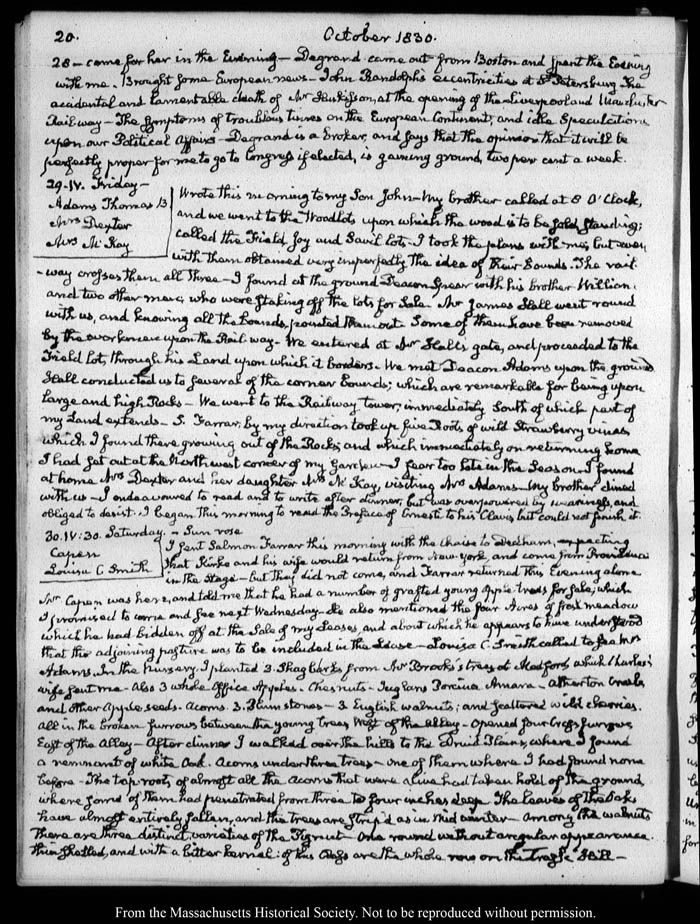 20.
October 1830.
28 — came for her in the Evening — Degrand came out from Boston and spent the Evening
with me. Brought some European news — John Randolph's eccentricities at St Petersburg. The
accidental and lamentable death of Mr Huskisson, at the opening of the Liverpool and Manchester
Railway — The symptoms of troublous times on the European Continent, and idle Speculation
upon our Political affairs — Degrand is a broker, and says that the opinion that it will be
perfectly proper for me to go to Congress if elected, is gaining ground, two per cent a week.
29. IV. Friday —
Adams Thomas B
Mrs Dexter
Mrs McKay
Wrote this morning to my Son John — My brother called at 8 O'Clock,
and we went to the Woodlots upon which the wood is to be sold, standing;
called the Field, Joy and Savil lots. I took the plans with me, but even
with them obtained very imperfectly the idea of their bounds. The rail-
-way crosses them all three — I found at the ground Deacon Spear with his brother William,
and two other men, who were staking off the lots for Sale. Mr James Hall went round
with us, and knowing all the bounds, pointed them out. Some of them have been removed
by the workmen upon the Rail way — We entered at Mr Hall's gate, and proceeded to the
Field lot, through his Land upon which it borders — We met Deacon Adams upon the ground
Hall conducted us to several of the corner bounds; which are remarkable for being upon
large and high Rocks — We went to the Railway tower, immediately South of which part of
my Land extends — S. Farrar, by my direction took up five Roots of wild Strawberry vines
which I found there growing out of the Rocks, and which immediately on returning home
I had set out at the Northwest corner of my Garden — I fear too late in the Season. I found
at home Mrs Dexter and her daughter Mrs McKay, visiting Mrs Adams — My brother dined
with us — I endeavoured to read and to write after dinner, but was overpowered by weariness, and
obliged to desist. I began this morning to read the Preface of Ernesti to his Clavis but could not finish it.
30. IV: 30. Saturday. — Sun rose
Capen
Louisa C Smith
I sent Salmon Farrar this morning with the Chaise to Dedham, expecting
that Kirke and his wife would return from New-York, and come from Providence
in the Stage — but they did not come, and Farrar returned this Evening alone
Mr Capen was here, and told me that he had a number of grafted young Apple trees for sale, which
I promised to come and see next Wednesday. He also mentioned the four Acres of fresh meadow
which he had bidden off at the Sale of my Leases, and about which he appears to have understood
that the adjoining pasture was to be included in the Lease — Louisa C. Smith called to see Mrs
Adams. In the Nursery I planted 3. Shagbarks from Mr Brooks's trees at Medford, which Charles's
wife sent me — Also 3 whole Office Apples — Chesnuts — Juglans Porcina Amara — Atherton
and other Apple seeds. Acorns. 3. Plum stones — 3 English walnuts; and scattered wild cherries.
All in the broken furrows between the young trees West of the Alley — Opened four Cross furrows
East of the Alley — After dinner I walked over the hills to the where I found
a remnant of white Oak Acorns under three trees — one of them where I had found none
before — The top roots of almost all the Acorns that were alive had taken hold of the ground
where some of them had penetrated from three to four inches deep. The leaves of the Oaks
have almost entirely fallen, and the trees are strip'd as in mid winter — Among the walnuts
there are three distinct varieties of the Pignut — One round without angular appearance.
thin shelled, and with a bitter kernel: of this Class are the whole row on the Hill —
From the Massachusetts Historical Society. Not to be reproduced without permission.